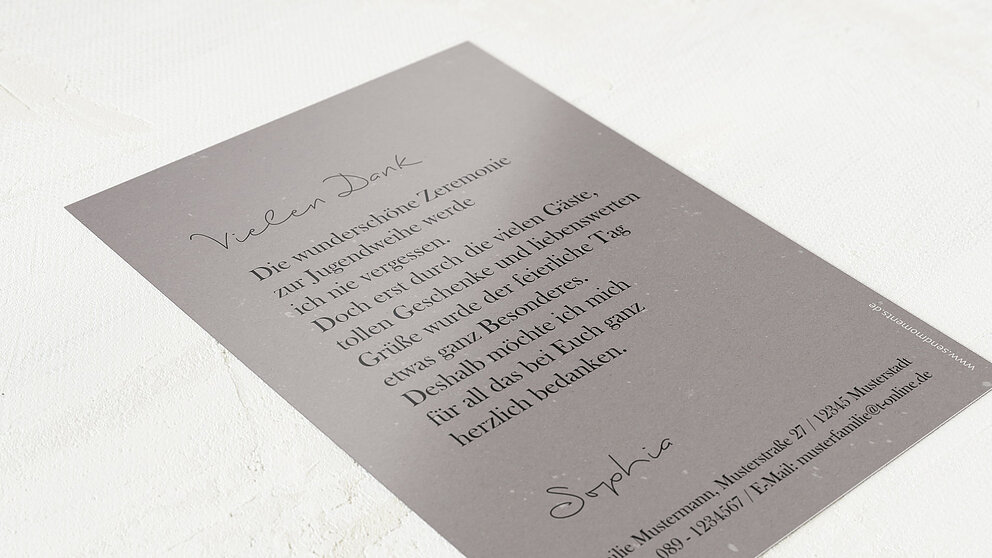 Vielen Dank
Die wunderschöne Zeremonie
zur Jugendweihe werde
ich nie vergessen.
Doch erst durch die vielen Gäste,
tollen Geschenke und liebenswerten
Grüße wurde der feierliche Tag
etwas ganz Besonderes.
Deshalb möchte ich mich
für all das bei Euch ganz
herzlich bedanken.
Sophia
Mustermann, Musterstraße 27 / 12345 Musterstadt
089 - 1234567 / E-Mail: musterfamilie@t-online.de
www.sendmoments.de